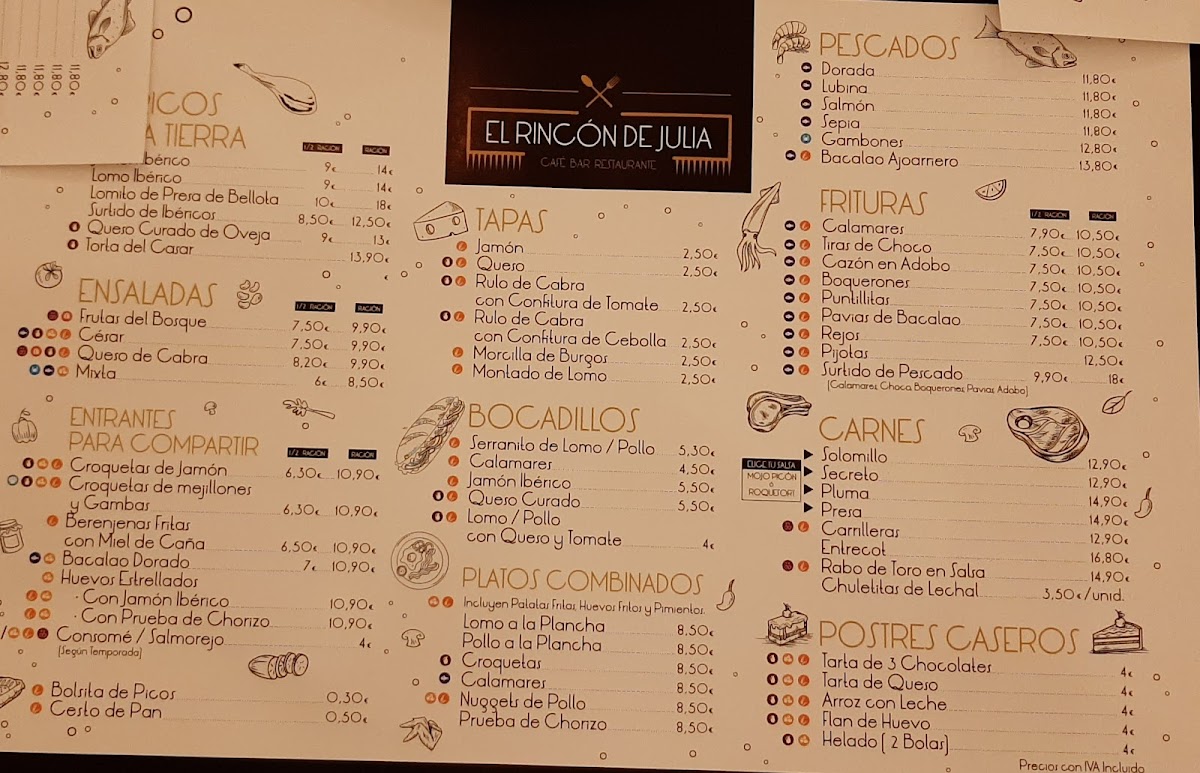 12,80
11,80€
11,80€
11,80€
11,80€
RICOS
A TIERRA
1/2 RACIÓN RACIÓN
Ibérico 9€ 14€
Lomo Ibérico 9€ 14€
Lomito de Presa de Bellota 10€ 18€
Surtido de Ibéricos 8,50€ 12,50€
Queso Curado de Oveja 9€ 13€
Torta del Casar 13,90€
€
ENSALADAS
1/2 RACIÓN RACIÓN
Frutas del Bosque 7,50€ 9,90€
César 7,50€ 9,90€
Queso de Cabra 8,20€ 9,90€
Mixta 6€ 8,50€
ENTRANTES
PARA COMPARTIR
1/2 RACIÓN RACIÓN
Croquetas de Jamón 6,30€ 10,90€
Croquetas de mejillones
y Gambas 6,30€ 10,90€
Berenjenas Fritas
con Miel de Caña 6,50€ 10,90€
Bacalao Dorado 7€ 10,90€
Huevos Estrellados
· Con Jamón Ibérico 10,90€
· Con Prueba de Chorizo 10,90€
/ Consomé / Salmorejo 4€
(Según Temporada)
Bolsita de Picos 0,30€
Cesto de Pan 0,50€
EL RINCÓN DE JULIA
CAFÉ BAR RESTAURANTE
TAPAS
Jamón 2,50€
Queso 2,50€
Rulo de Cabra
con Confitura de Tomate 2,50€
Rulo de Cabra
con Confitura de Cebolla 2,50€
Morcilla de Burgos 2,50€
Montado de Lomo 2,50€
BOCADILLOS
Serranito de Lomo / Pollo 5,30€
Calamares 4,50€
Jamón Ibérico 5,50€
Queso Curado 5,50€
Lomo / Pollo
con Queso y Tomate 4€
PLATOS COMBINADOS
Incluyen Patatas Fritas, Huevos Fritos y Pimientos.
Lomo a la Plancha 8,50€
Pollo a la Plancha 8,50€
Croquetas 8,50€
Calamares 8,50€
Nuggets de Pollo 8,50€
Prueba de Chorizo 8,50€
PESCADOS
Dorada 11,80€
Lubina 11,80€
Salmón 11,80€
Sepia 11,80€
Gambones 12,80€
Bacalao Ajoarriero 13,80€
FRITURAS
1/2 RACIÓN RACIÓN
Calamares 7,90€ 10,50€
Tiras de Choco 7,50€ 10,50€
Cazón en Adobo 7,50€ 10,50€
Boquerones 7,50€ 10,50€
Puntillitas 7,50€ 10,50€
Pavias de Bacalao 7,50€ 10,50€
Rejos 7,50€ 10,50€
Pijotas 12,50€
Surtido de Pescado 9,90€ 18€
(Calamares, Choco, Boquerones, Pavias, Adobo)
CARNES
ELIGE TU SALSA
MOJO PICÓN
ó
ROQUEFORT
Solomillo 12,90€
Secreto 12,90€
Pluma 14,90€
Presa 14,90€
Carrilleras 12,90€
Entrecot 16,80€
Rabo de Toro en Salsa 14,90€
Chuletitas de Lechal 3,50€/unid.
POSTRES CASEROS
Tarta de 3 Chocolates 4€
Tarta de Queso 4€
Arroz con Leche 4€
Flan de Huevo 4€
Helado ( 2 Bolas) 4€
Precios con IVA Incluido